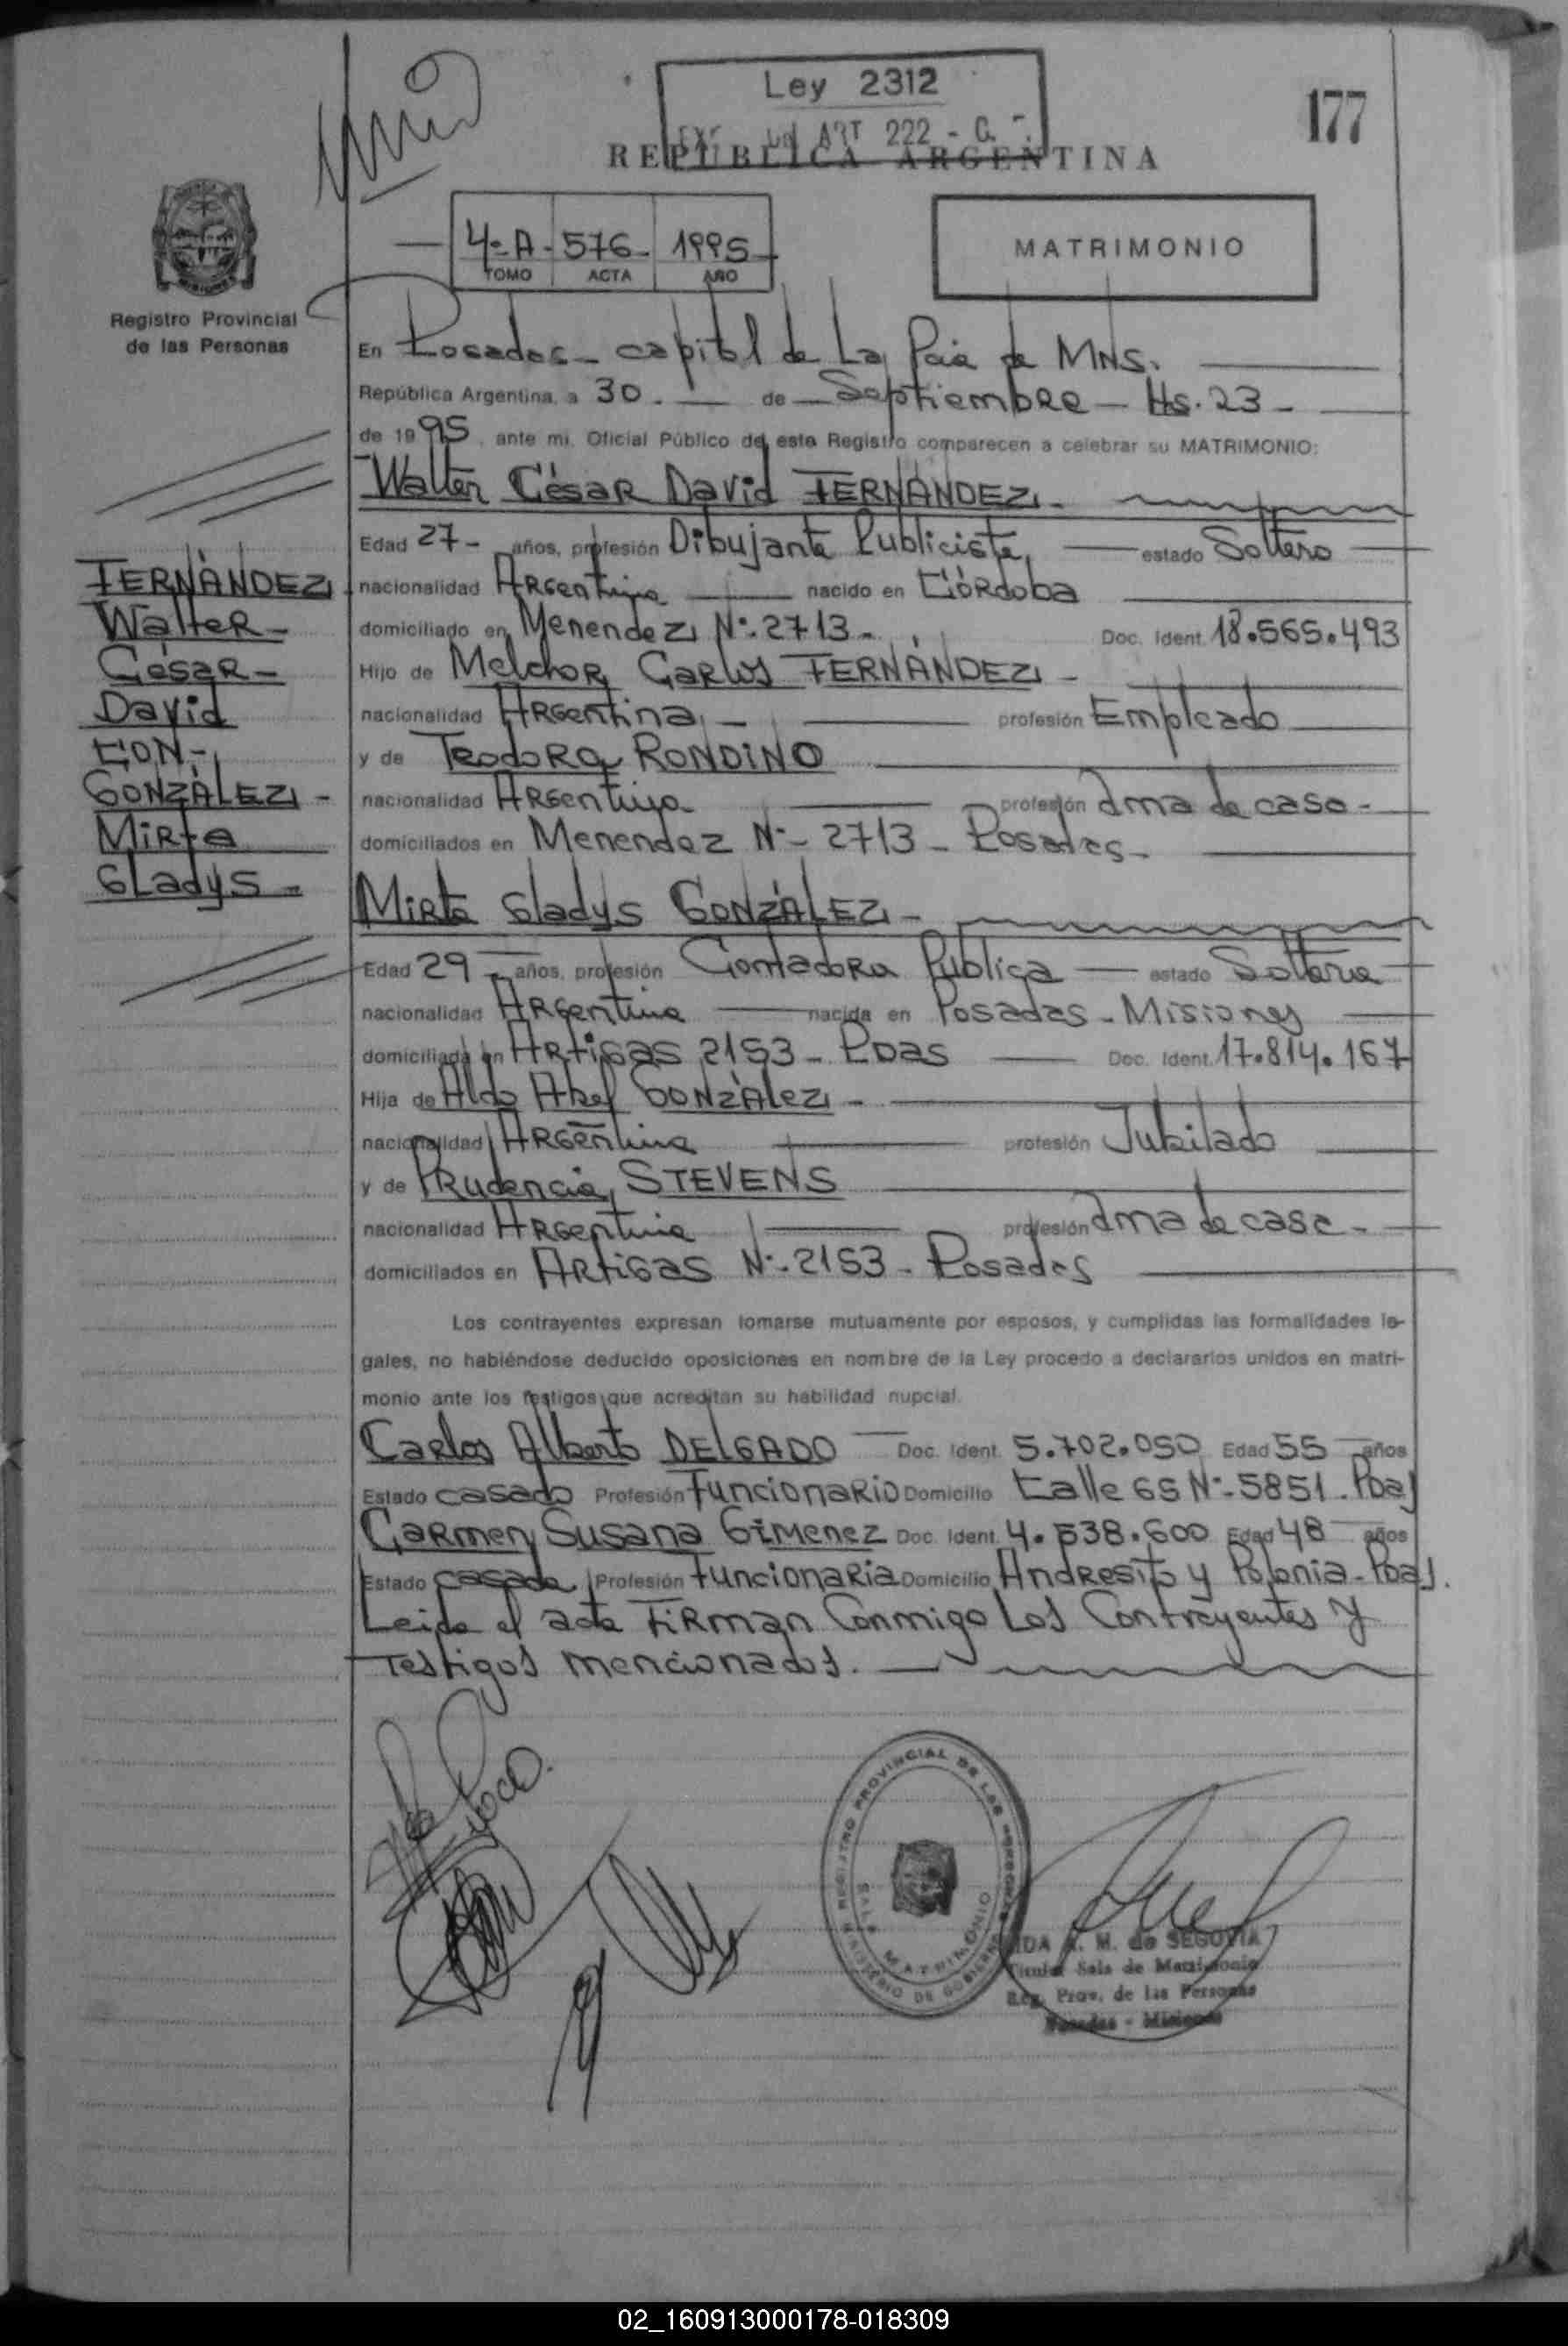 Ley 2312
ART 222 - C.
177
REPUBLICA ARGENTINA
4º A - 576 - 1995
TOMO ACTA AÑO
MATRIMONIO
Registro Provincial
de las Personas
En Posadas - capital de La Pcia de MNS.
República Argentina, a 30. de Septiembre - Hs. 23 -
de 1995, ante mi, Oficial Público de este Registro comparecen a celebrar su MATRIMONIO:
Walter César David FERNÁNDEZ -
Edad 27 - años, profesión Dibujante Publicista, estado Soltero
nacionalidad Argentina nacido en Córdoba
domiciliado en Menendez Nº. 2713 - Doc. Ident. 18.565.493
Hijo de Melchor Carlos FERNÁNDEZ -
nacionalidad Argentina - profesión Empleado
y de Teodora RONDINO
nacionalidad Argentina profesión ama de casa -
domiciliados en Menendez Nº - 2713 - Posadas -
FERNÁNDEZ
Walter -
César -
David
CON -
GONZÁLEZ -
Mirta
Gladys -
Mirta Gladys GONZÁLEZ -
Edad 29 - años, profesión Contadora Publica estado Soltera
nacionalidad Argentina nacida en Posadas - Misiones
domiciliada en Artigas 2153 - Pdas Doc. Ident. 17.814.167
Hija de Aldo Abel GONZÁLEZ -
nacionalidad Argentina profesión Jubilado
y de Prudencia STEVENS
nacionalidad Argentina profesión ama de casa -
domiciliados en Artigas Nº - 2153 - Posadas
Los contrayentes expresan tomarse mutuamente por esposos, y cumplidas las formalidades le-
gales, no habiéndose deducido oposiciones en nombre de la Ley procedo a declararlos unidos en matri-
monio ante los testigos que acreditan su habilidad nupcial.
Carlos Alberto DELGADO Doc. Ident. 5.702.050 Edad 55 años
Estado casado Profesión Funcionario Domicilio Calle 65 Nº - 5851 - Pdas
Carmen Susana Gimenez Doc. Ident. 4.538.600 Edad 48 años
Estado casada Profesión Funcionaria Domicilio Andresito y Polonia - Pdas.
Leida el acta Firman Conmigo Los Contrayentes y
Testigos mencionados.
REGISTRO PROVINCIAL DE LAS PERSONAS
MINISTERIO DE GOBIERNO
SALA MATRIMONIO
A. M. de SEGOVIA
Titular Sala de Matrimonio
Reg. Prov. de las Personas
Posadas - Misiones
02_160913000178-018309